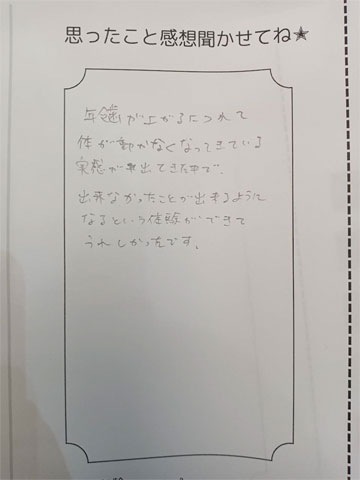 思ったこと感想聞かせてね★
年齢が上がるにつれて
体が動かなくなってきている
実感が出てきた中で、
出来なかったことが出来るように
なるという体験ができて
うれしかったです。